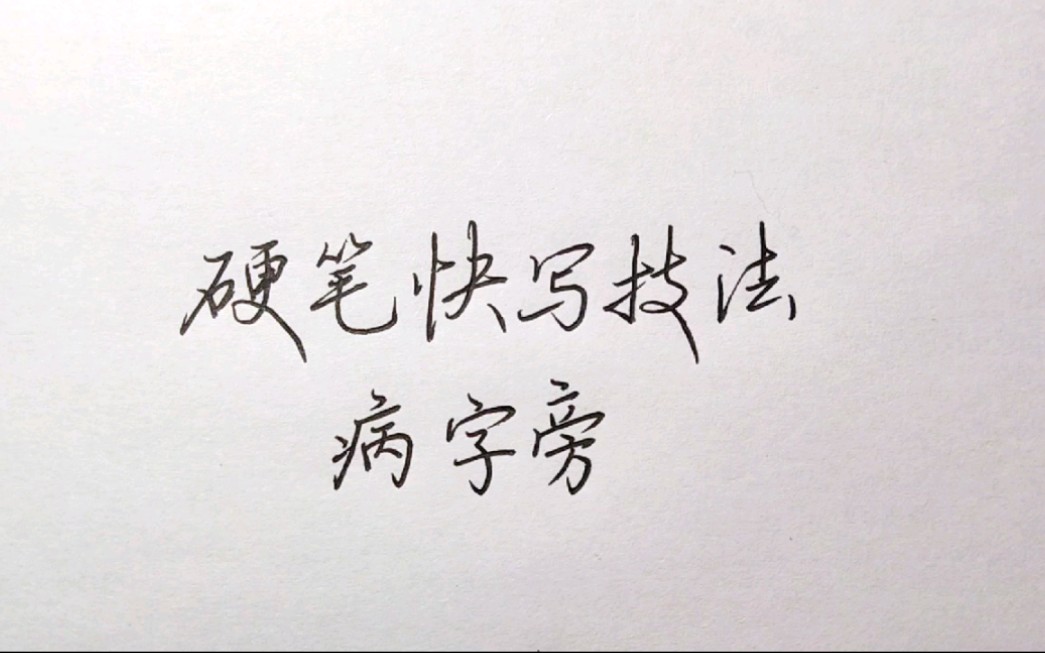 硬笔快写技法
病字旁